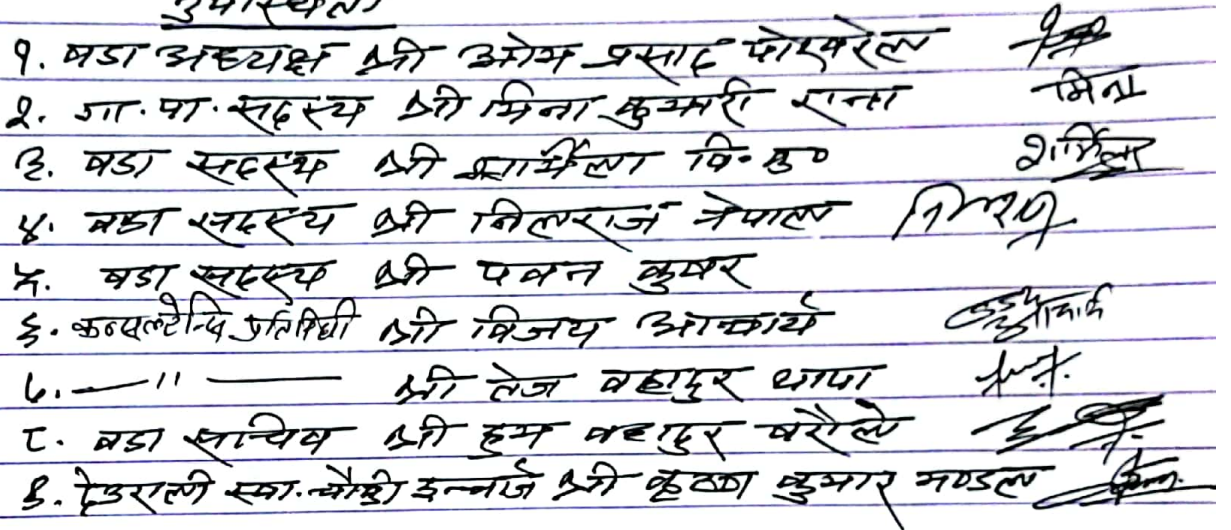 उपस्थिती
१. वडा अध्यक्ष श्री ओम प्रसाद पोखरेल
२. गा.पा. सदस्य श्री मिना कुमारी राना मिना
३. वडा सदस्य श्री शर्मिला वि.क० शर्मिला
४. वडा सदस्य श्री निलराज नेपाल
५. वडा सदस्य श्री पवन कुवर
६. कन्सल्टेन्सि प्रतिनिधी श्री विजय आचार्य
७. —〃— श्री तेज बहादुर थापा
८. वडा सचिव श्री हुम बहादुर वरौले
९. देउराली स्वा. चौकी इन्चार्ज श्री कृष्ण कुमार मण्डल